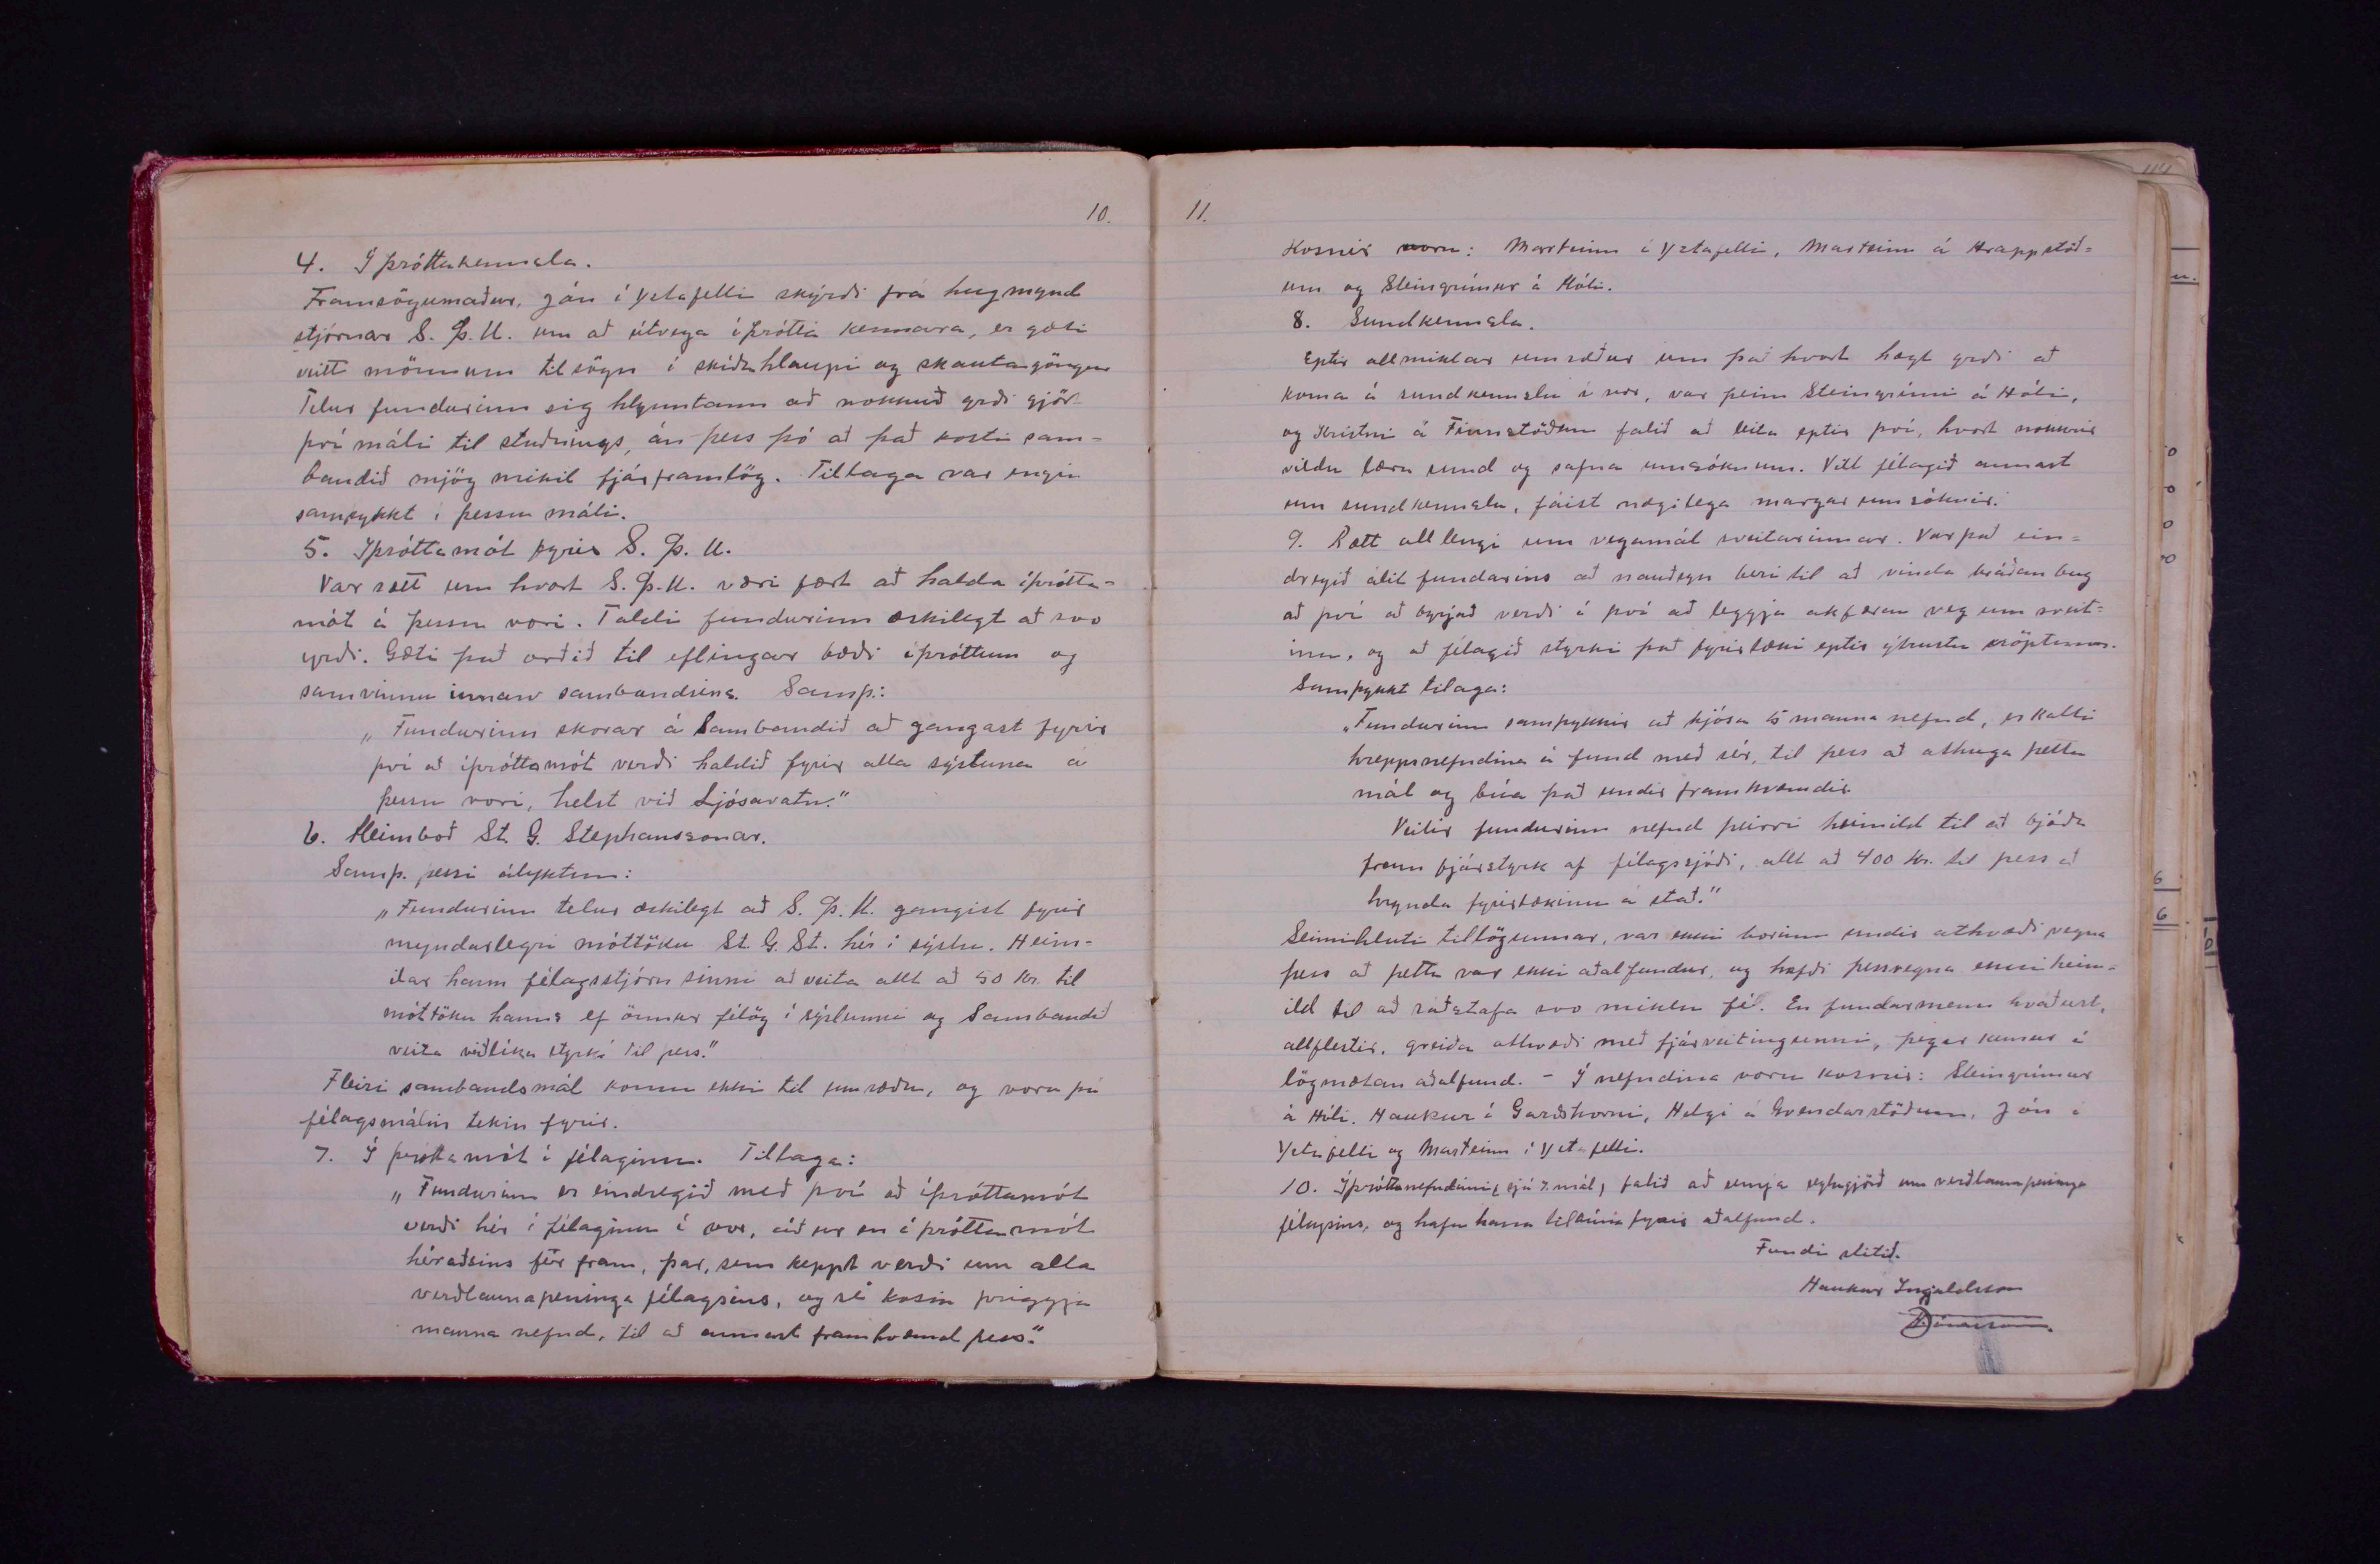 10.
4. Íþróttakennsla.
Framsögumaður, Jón í Yztafelli skýrði frá hugmynd
stjórnar S. Þ. U. um að útvega íþrótta kennara, er gæti
veitt mönnum tilsögn í skíðahlaupi og skautagöngu
Telur fundurinn sig hlynntann að nokkuð yrði gjört
því máli til stuðnings, án þess þó að það kosti sam-
bandið mjög mikil fjárframlög. Tillaga var engin
samþykkt í þessu máli.
5. Íþróttamót fyrir S. Þ. U.
Var rætt um hvort S. Þ. U. væri fært að halda íþrótta-
mót á þessu vori. Taldi fundurinn æskilegt að svo
yrði. Gæti það orðið til eflingar bæði íþróttum og
samvinnu innan sambandsins. Samþ.:
„Fundurinn skorar á Sambandið að gangast fyrir
því að íþróttamót verði haldið fyrir alla sýsluna á
þessu vori, helst við Ljósavatn."
6. Heimboð St. G. Stephanssonar.
Samþ. þessi ályktun:
„Fundurinn telur æskilegt að S. Þ. U. gangist fyrir
myndarlegri móttöku St. G. St. hér í sýslu. Heim-
ilar hann félagsstjórn sinni að veita allt að 50 kr. til
móttöku hanns ef önnur félög í sýslunni og Sambandið
veita viðlíka styrk til þess."
Fleiri sambandsmál komu ekki til umræðu, og voru þá
félagsmálin tekin fyrir.
7. Íþróttamót í félaginu. Tillaga:
„Fundurinn er eindregið með því að íþróttamót
verði hér í félaginu í vor, áður en íþróttamót
héraðsins fer fram, þar, sem keppt verði um alla
verðlaunapeninga félagsins, og sé kosin þriggja
manna nefnd, til að annast framkvæmd þess."
11.
Kosnir voru: Marteinn í Yztafelli, Marteinn á Hrappstöð-
um og Steingrímur á Hóli.
8. Sundkennsla.
Eptir allmiklar umræður um það hvort hægt yrði að
koma á sundkennslu í vor, var þeim Steingrími á Hóli,
og Kristni á Finnstöðum falið að leita eptir því, hvort nokkrir
vildu læra sund og safna umsóknum. Vill félagið annast
um sundkennslu, fáist nægilega margar umsóknir.
9. Rætt all lengi um vegamál sveitarinnar. Var það ein-
dregið álit fundarins að nauðsyn beri til að vinda bráðan bug
að því að byrjað verði á því að leggja akfæran veg um sveit-
ina, og að félagið styrki það fyrirtæki eptir ýtrustu kröptum.
Samþykkt tilaga:
„Fundurinn samþykkir að kjósa 5 manna nefnd, er kalli
hreppsnefndina á fund með sér, til þess að athuga þetta
mál og búa það undir framkvæmdir.
Veitir fundurinn nefnd þeirri heimild til að bjóða
fram fjárstyrk af félagssjóði, allt að 400 kr. til þess að
hrynda fyrirtækinu á stað."
Seinnihluti tillögunnar, var ekki borinn undir athvæði vegna
þess að þetta var ekki aðalfundur, og hafði þessvegna ekki heim-
ild til að ráðstafa svo miklu fé. En fundarmenn kváðust,
allflestir, greiða athvæði með fjárveitingunni, þegar kemur á
lögmætan aðalfund. - Í nefndina voru kosnir: Steingrímur
á Hóli, Haukur í Garðshorni, Helgi á Gvendarstöðum, Jón í
Yztafelli og Marteinn í Yztafelli.
10. Íþróttanefndinni (sjá 7. mál) falið að semja reglugjörð um verðlaunapeninga
félagsins, og hafa hana tilbúna fyrir aðalfund.
Fundi slitið.
Haukur Ingjaldsson